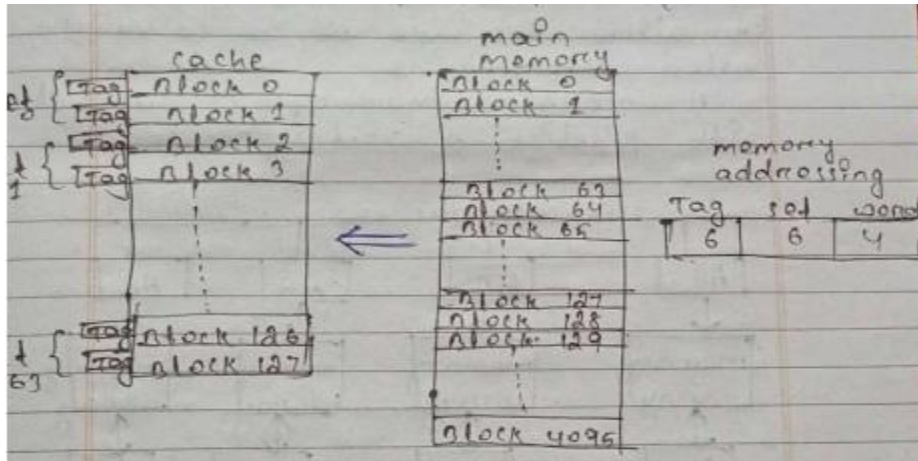 cache
Tag Block 0
Tag Block 1
Tag Block 2
1 Tag Block 3
Tag Block 126
63 Tag Block 127
main
memory
Block 0
Block 1
Block 63
Block 64
Block 65
Block 127
Block 128
Block 129
Block 4095
memory
addressing
Tag set word
6 6 4